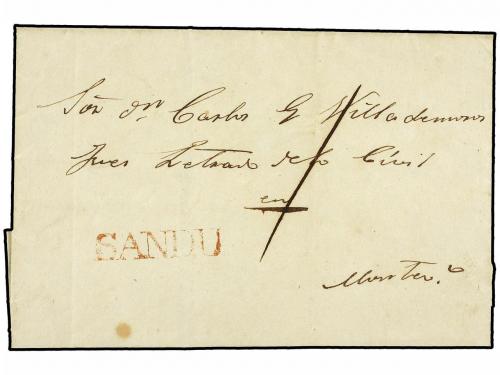 Sor dn Carlos G Villademoros
Juez Letrado de lo Civil
en
SANDU
Montevo